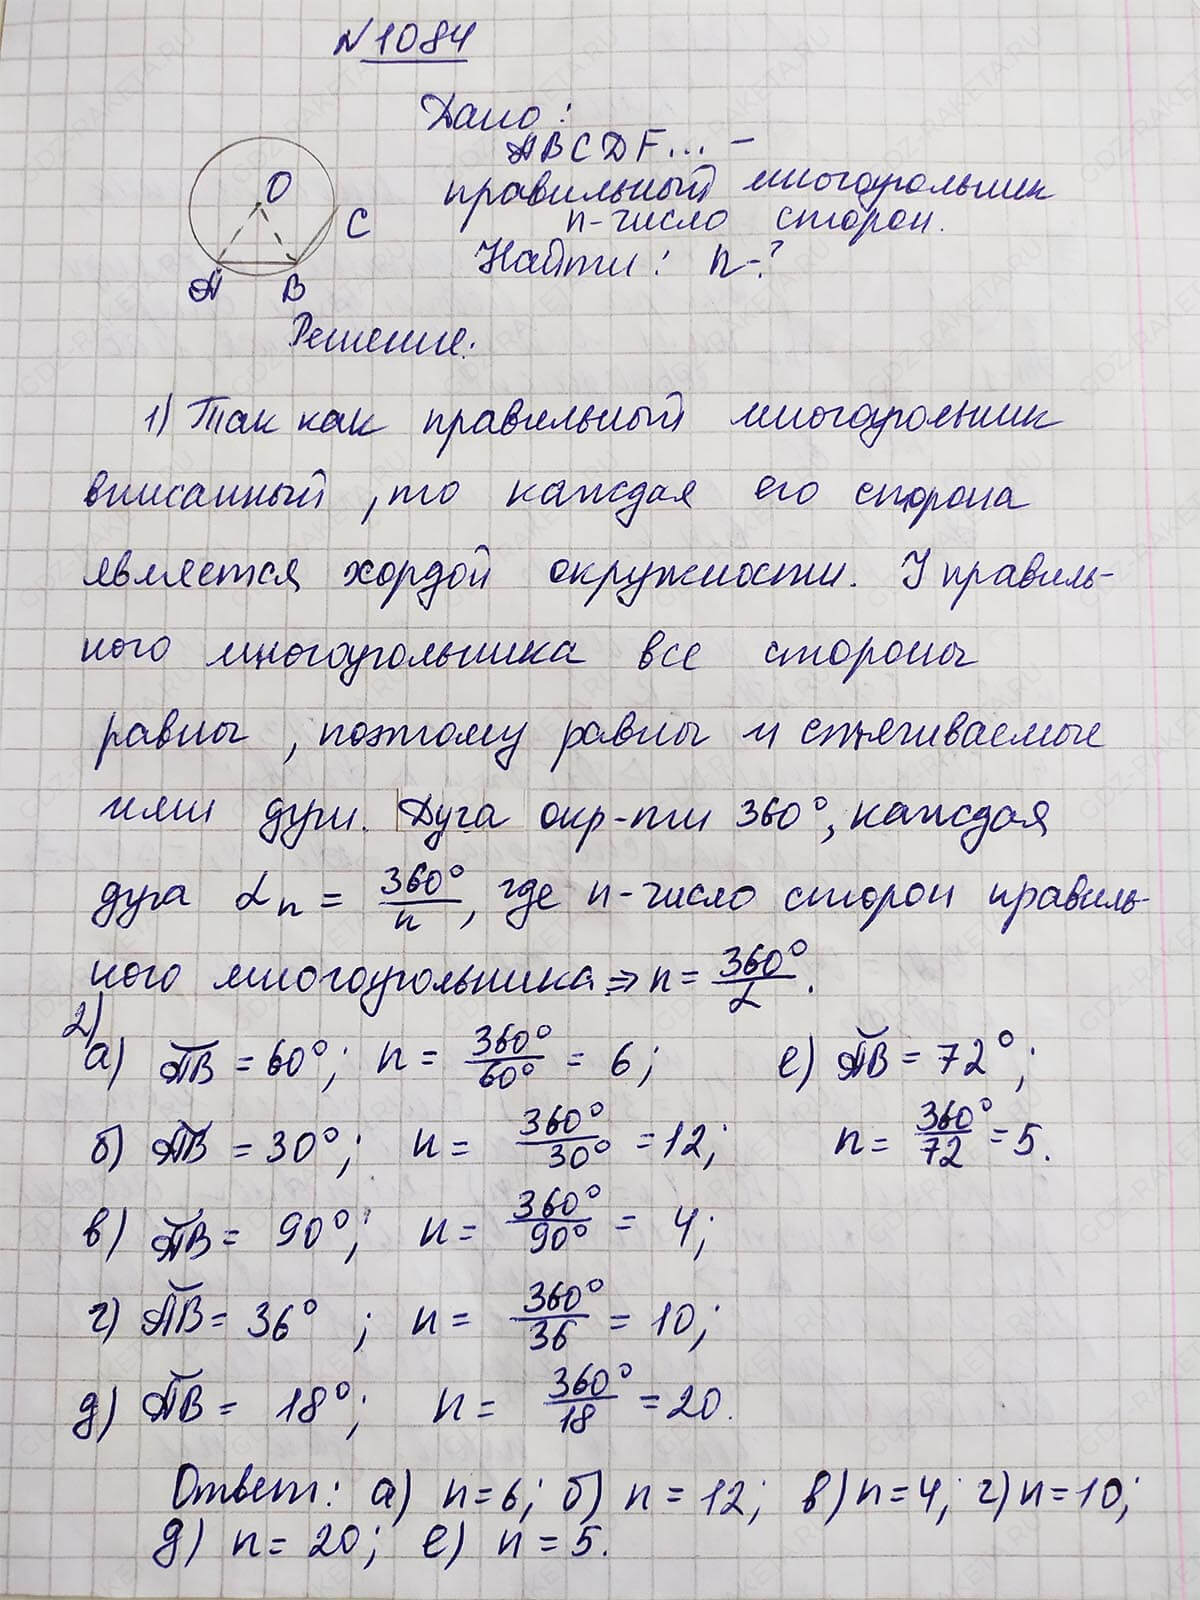 №1084
Дано:
ABCDF... –
правильный многоугольник
n-число сторон.
Найти: n-?
O
C
A B
Решение:
1) Так как правильный многоугольник
вписанный, то каждая его сторона
является хордой окружности. У правиль-
ного многоугольника все стороны
равны, поэтому равны и стягиваемые
ими дуги. Дуга окр-ти 360°, каждая
дуга αn = 360°/n, где n-число сторон правиль-
ного многоугольника ⇒ n = 360°/α.
2)
а) ᴗAB = 60°; n = 360°/60° = 6; е) ᴗAB = 72°;
б) ᴗAB = 30°; n = 360°/30° = 12; n = 360°/72 = 5.
в) ᴗAB = 90°; n = 360°/90° = 4;
г) ᴗAB = 36°; n = 360°/36 = 10;
д) ᴗAB = 18°; n = 360°/18 = 20.
Ответ: а) n=6; б) n=12; в) n=4; г) n=10;
д) n=20; е) n=5.